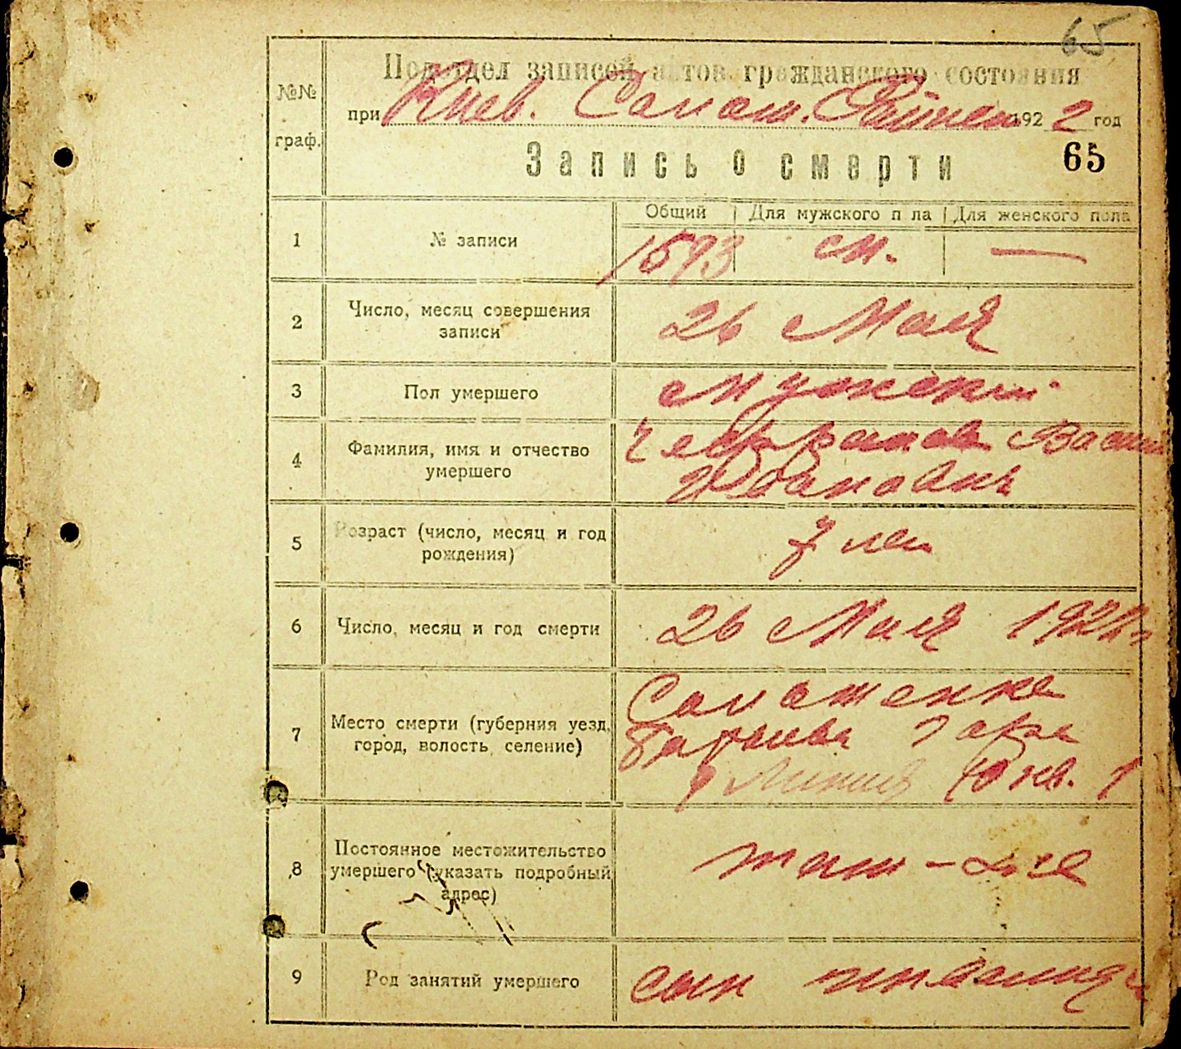 65
№№ граф.
Подотдел записей актов гражданского состояния
при Киев. Солом. Район 1922 год
Запись о смерти 65
Общий Для мужского пола Для женского пола
1 № записи 1593 м. —
2 Число, месяц совершения записи 26 Мая
3 Пол умершего Мужской
4 Фамилия, имя и отчество умершего
Иванович
5 Возраст (число, месяц и год рождения) 7 лет
6 Число, месяц и год смерти 26 Мая 1922 г
7 Место смерти (губерния уезд, город, волость селение) Соломенка
гора
Линия кв. 1
8 Постоянное местожительство умершего (указать подробный адрес) там-же
9 Род занятий умершего сын инвалида